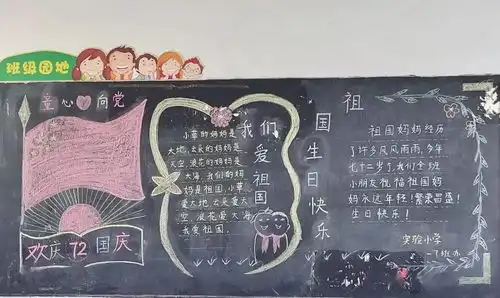 班级园地
童心向党
欢庆72国庆
小草的妈妈是
大地,云朵的妈妈是
天空,浪花的妈妈是
大海,我们的妈
妈是祖国,小草
爱大地,云朵爱天
空,浪花爱大海,
我爱祖国。
我们
爱祖国
祖
国生日快乐
祖国妈妈经历
了许多风风雨雨,今年
七十二岁了,我们全班
小朋友祝福祖国妈
妈永远年轻!繁荣昌盛!
生日快乐!
实验小学
一7班办